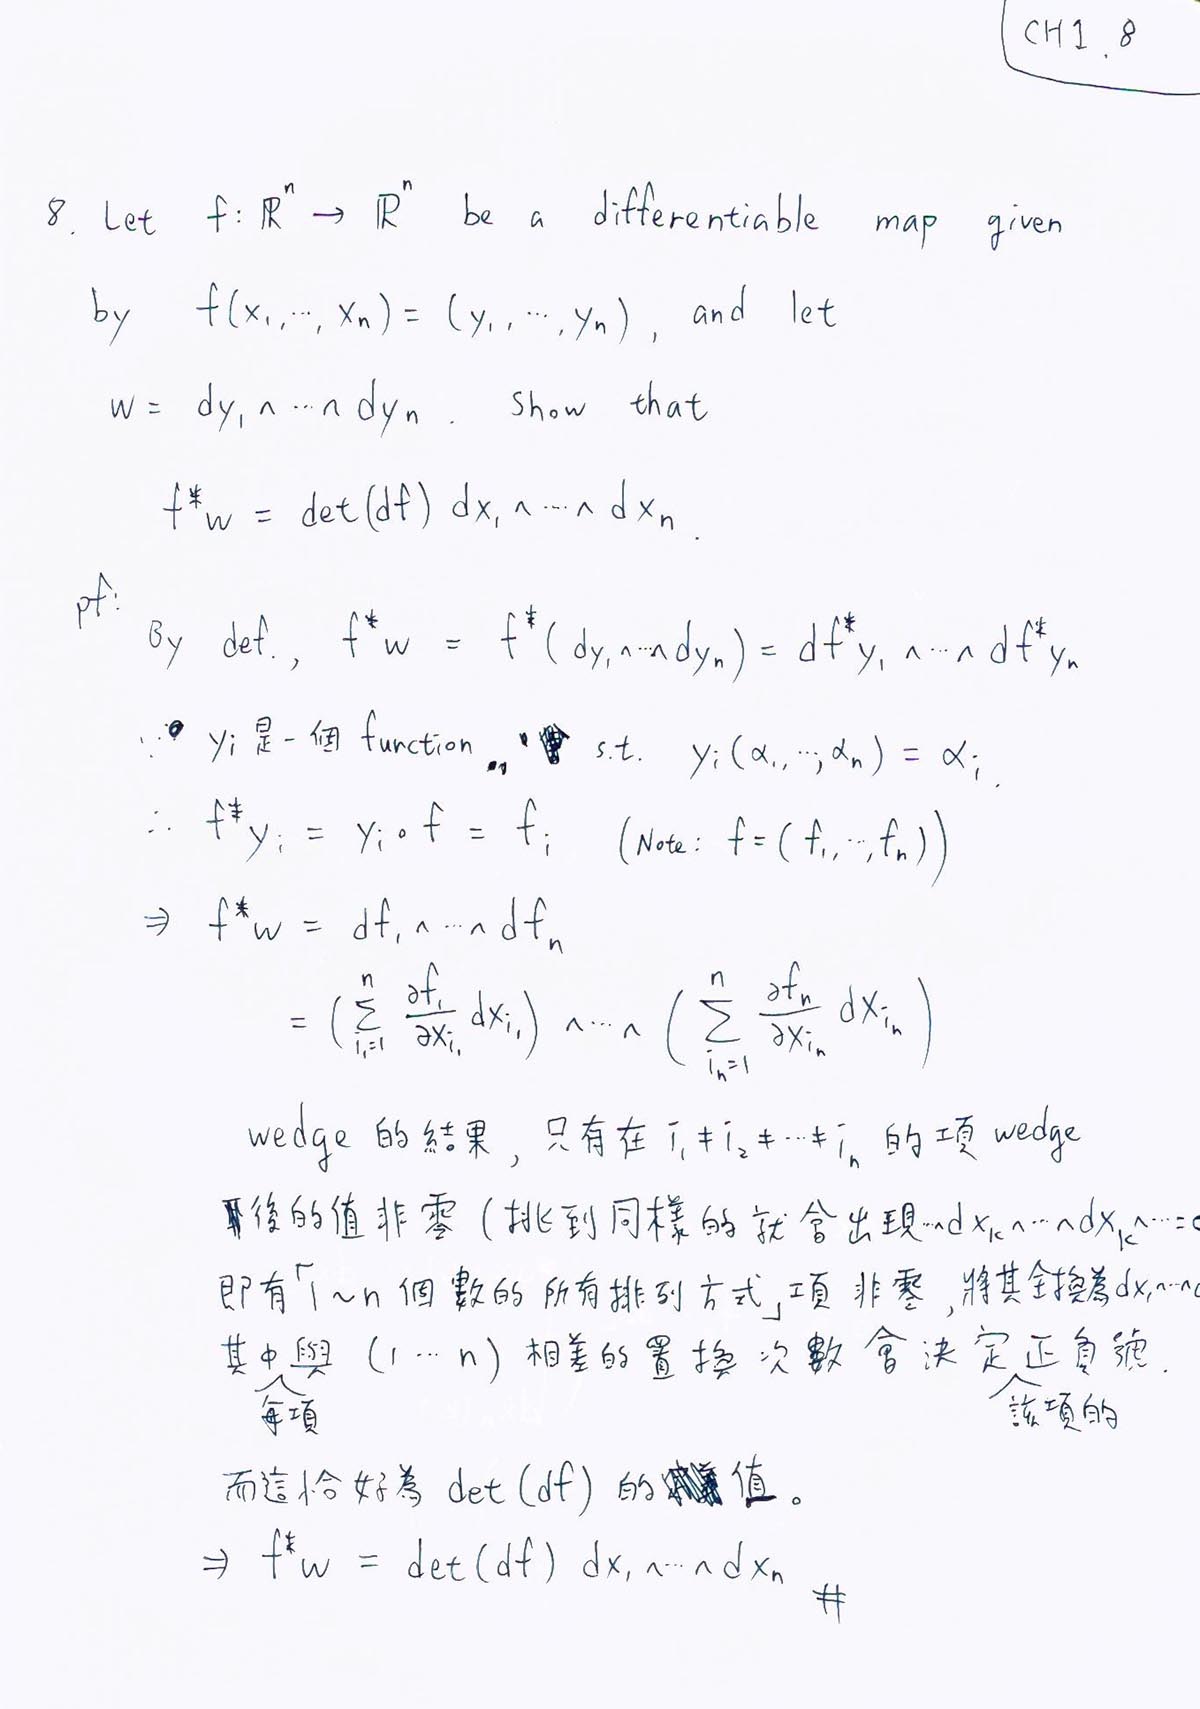 CH1.8
8. Let f: ℝⁿ → ℝⁿ be a differentiable map given
by f(x₁,…, xₙ) = (y₁,…, yₙ), and let
w = dy₁ ∧ … ∧ dyₙ. Show that
f*w = det(df) dx₁ ∧ … ∧ dxₙ.
pf:
By def., f*w = f*(dy₁ ∧ … ∧ dyₙ) = df*y₁ ∧ … ∧ df*yₙ
∵ yᵢ是一個 function, s.t. yᵢ(α₁,…,αₙ) = αᵢ.
∴ f*yᵢ = yᵢ∘f = fᵢ (Note: f = (f₁,…,fₙ))
⇒ f*w = df₁ ∧ … ∧ dfₙ
= (∑_{i₁=1}^{n} ∂f₁/∂x_{i₁} dx_{i₁}) ∧ … ∧ (∑_{iₙ=1}^{n} ∂fₙ/∂x_{iₙ} dx_{iₙ})
wedge 的結果, 只有在 i₁ ≠ i₂ ≠ … ≠ iₙ 的項 wedge
後的值非零 (挑到同樣的就會出現 …∧dxₖ∧…∧dxₖ∧… =
即有「1~n 個數的所有排列方式」項非零, 將其全換為 dx₁∧…
其中與 (1 … n) 相差的置換次數會決定正負號.
每項 該項的
而這恰好為 det(df) 的值。
⇒ f*w = det(df) dx₁ ∧ … ∧ dxₙ #